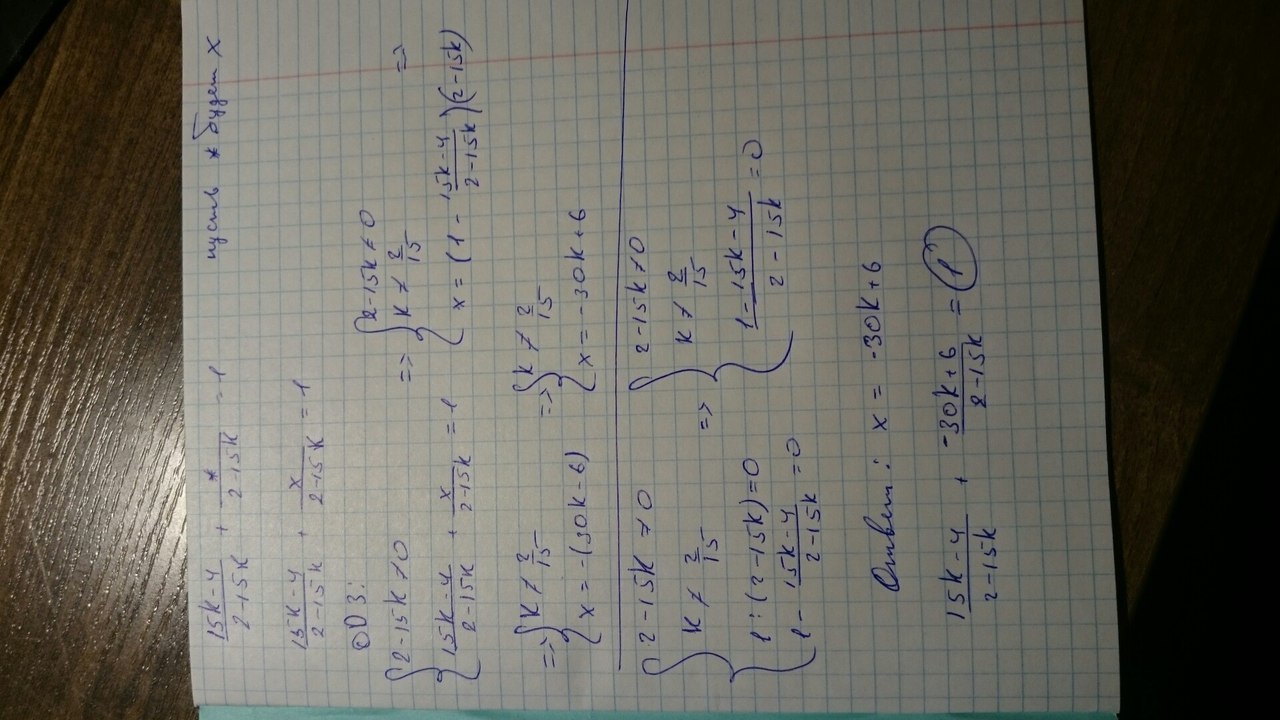 (15k-4)/(2-15k) + */(2-15k) = 1 пусть * будет x
(15k-4)/(2-15k) + x/(2-15k) = 1
ОДЗ:
{ 2-15k≠0
{ (15k-4)/(2-15k) + x/(2-15k) = 1
=> { 2-15k≠0
{ k ≠ 2/15
{ x = (1 - (15k-4)/(2-15k))(2-15k) =>
=> { k ≠ 2/15
{ x = -(30k-6)
=> { k ≠ 2/15
{ x = -30k+6
{ 2-15k ≠0
{ k ≠ 2/15
{ 1:(2-15k)=0
{ 1 - (15k-4)/(2-15k) =0
=> { 2-15k≠0
{ k ≠ 2/15
{ (1-15k-4)/(2-15k) =0
Ответ: x = -30k+6
(15k-4)/(2-15k) + (-30k+6)/(2-15k) = 1